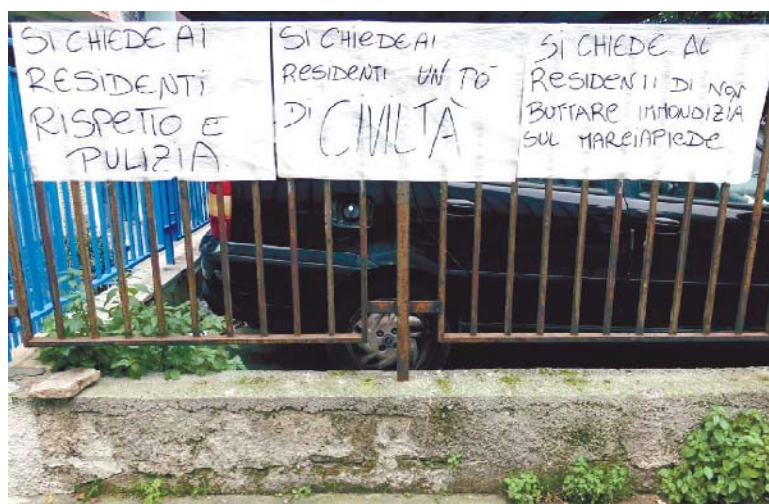 SI CHIEDE AI
RESIDENTI
RISPETTO E
PULIZIA
SI CHIEDE AI
RESIDENTI UN PÒ
DI CIVILTÀ
SI CHIEDE AI
RESIDENTI DI NON
BUTTARE IMMONDIZIA
SUL MARCIAPIEDE